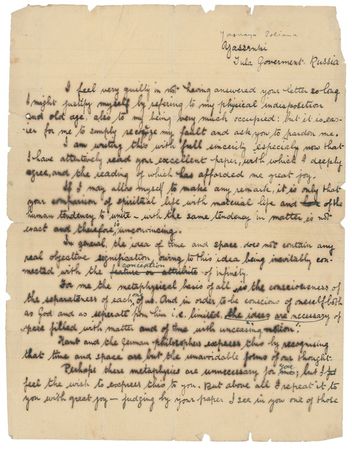 Yasnaya Poliana
Yasernki
Tula Goverment. Russia
I feel very guilty in not having answered your letter so long
I might justify myself by refering to my physical indisposition
and old age, also to my being very much occupied: but it is eas-
ier for me to simply recognize my fault and ask you to pardon me.
I am writing this with full sincerity especially now that
I have attentively read your excellent paper, with which I deeply
agree, and the reading of which has afforded me great joy.
If I may allow myself to make any remark it is only that
your comparison of spiritual life with material life and of the
human tendency to unite - with the same tendency in matter is not
exact and therefore unconvincing.
In general, the idea of time and space does not contain any
real objective signification owing to this idea being inevitably con-
conception
nected with the feature or attribute of infinity.
For me, the metaphysical basis of all is the consciousness of
the separateness of each of us. And in order to be conscious of oneself both
as God and as separate from him i.e. limited, the ideas are necessary of
space filled with matter and of time with unceasing motion.
Kant and the German philosophers express this by recognising
that time and space are but the unavoidable forms of our thought.
Perhaps these metaphysics are unnecessary for but I
feel the wish to express this to you. But above all I repeat it to
you with great joy - judging by your paper I see in you one of those